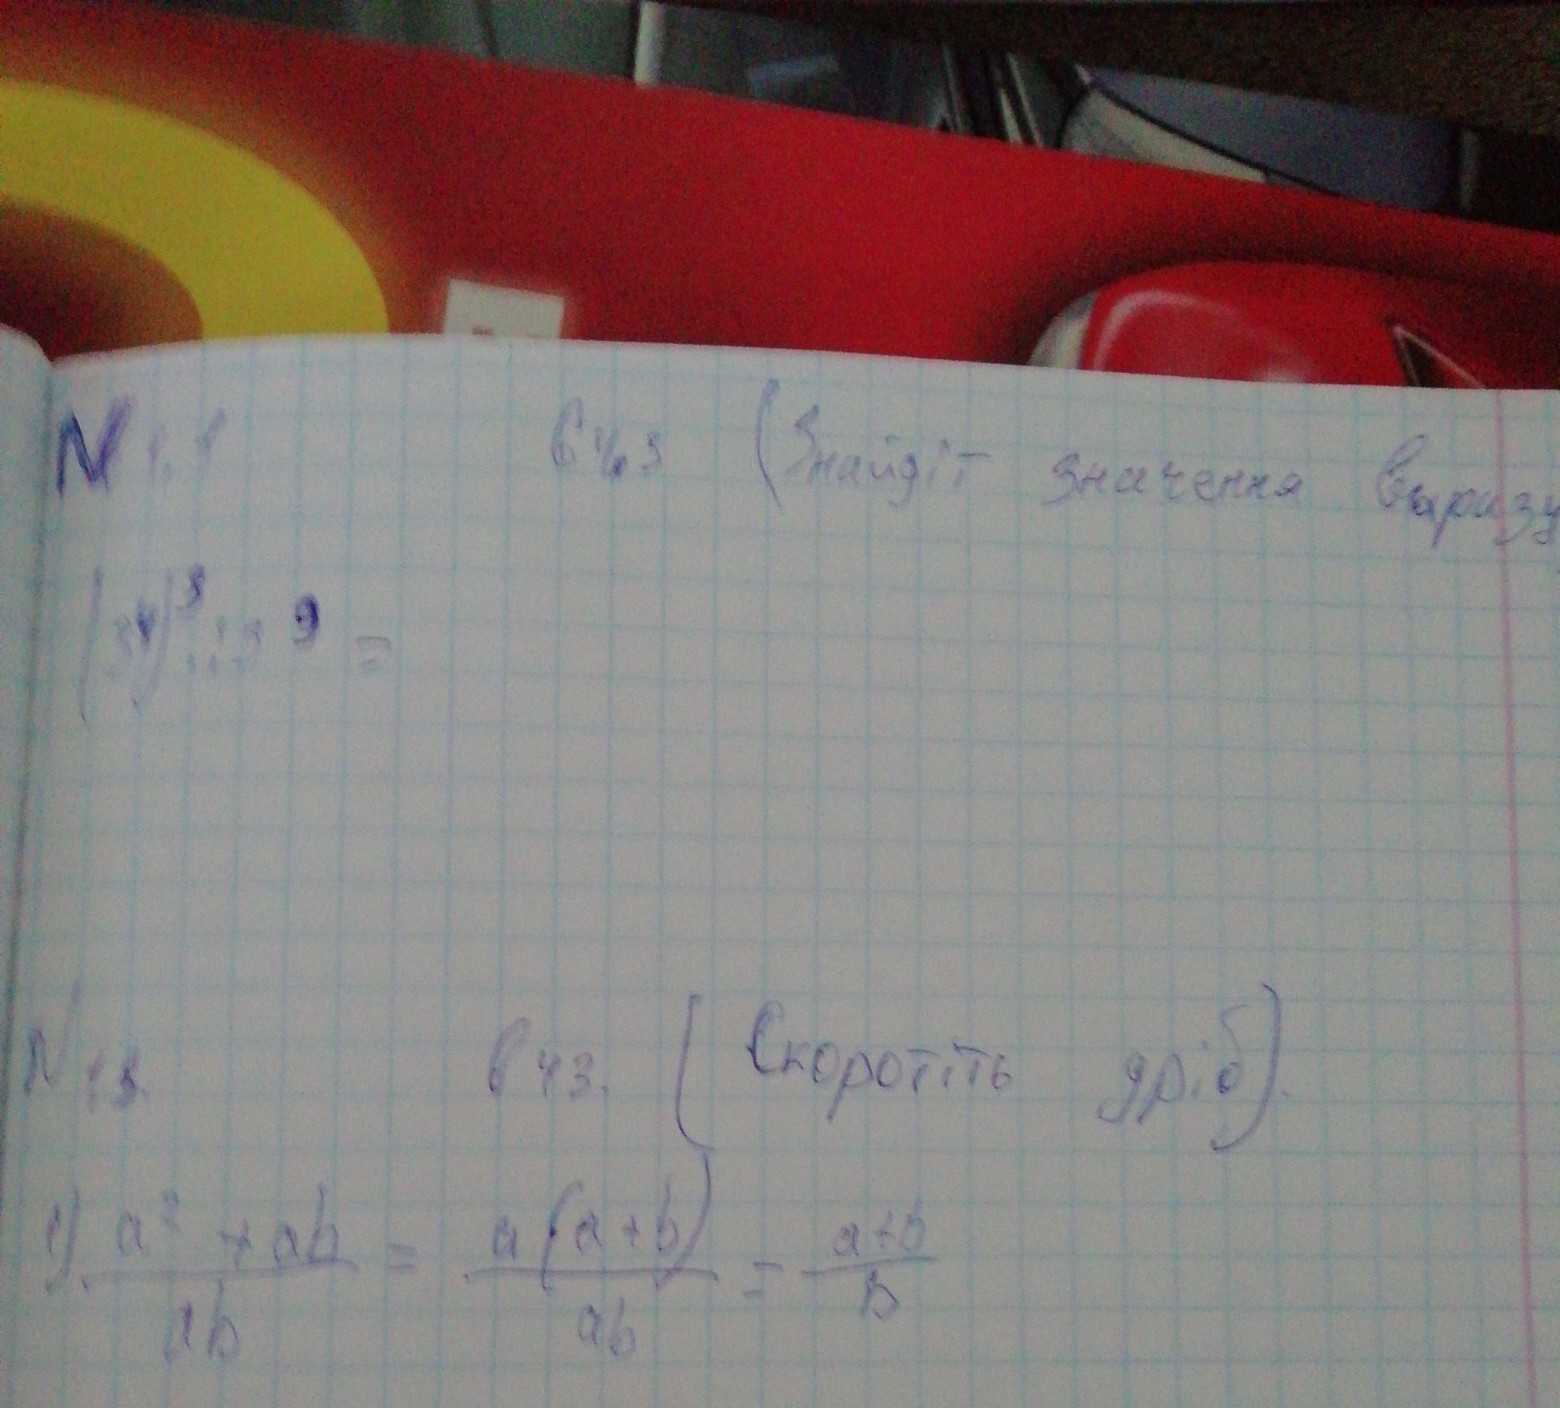 N 1.1 в 43 (Знайдіт значення выразу
(3⁴)³ : 3⁹ =
N 13. в 43. (Скоротіть дріб).
1) a² + ab / ab = a(a+b) / ab = a+b / b